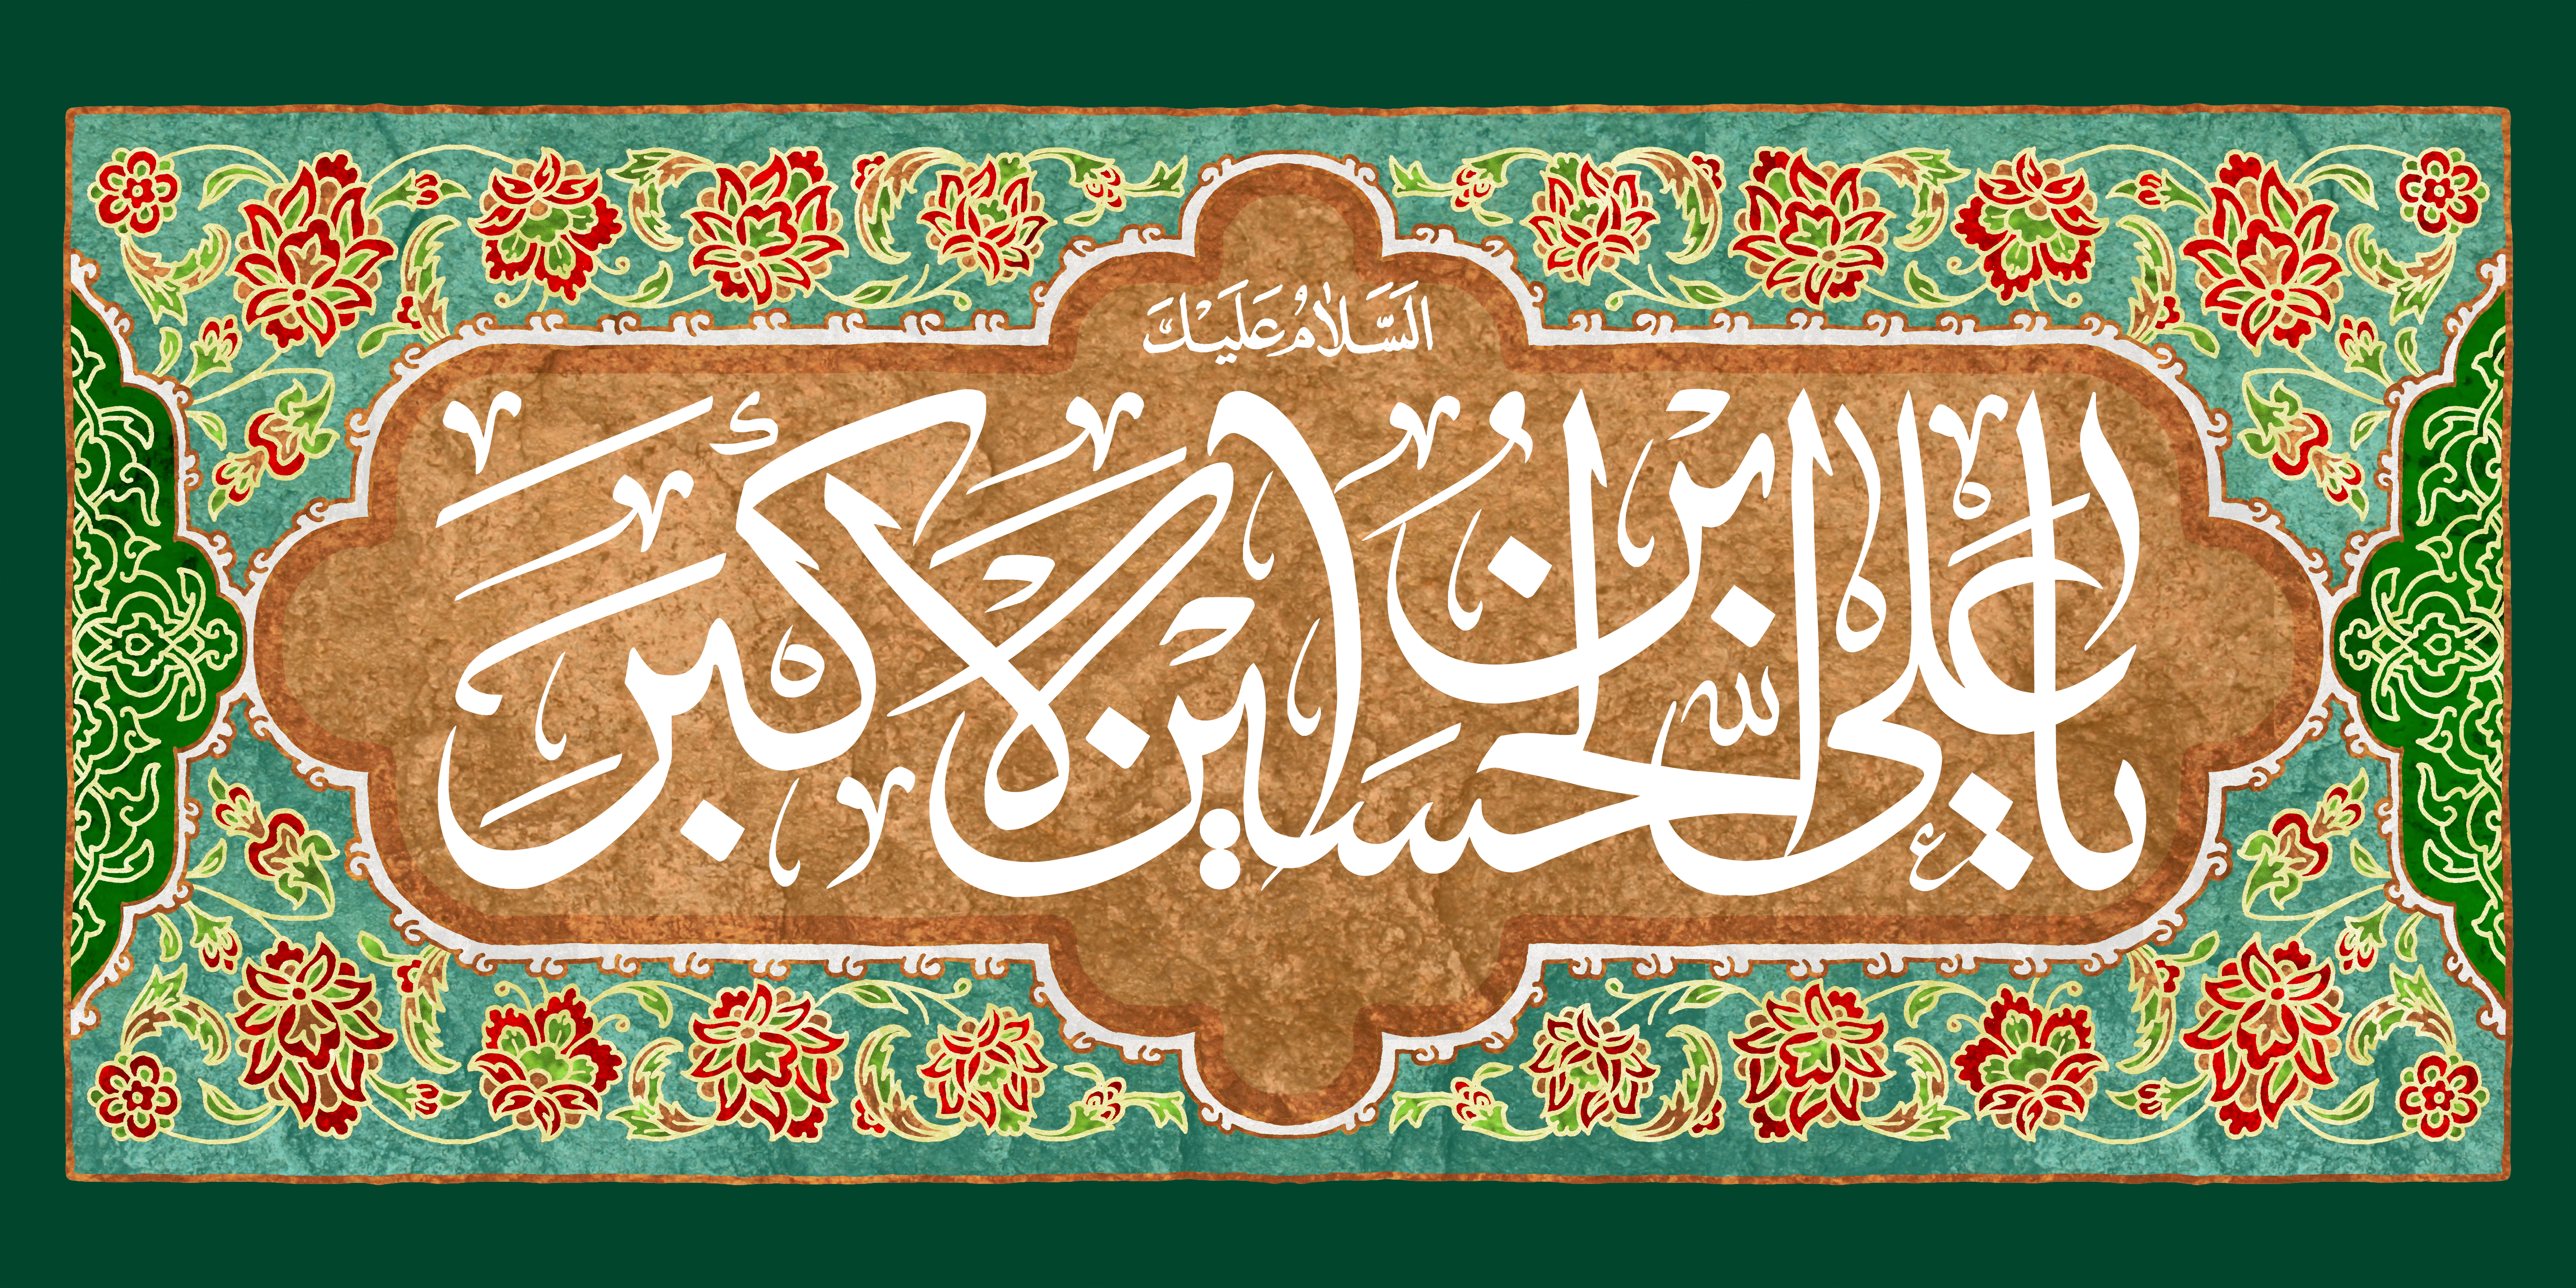 اَلسَّلامُ عَلَیْكَ
یا علی بن الحسین الاکبر